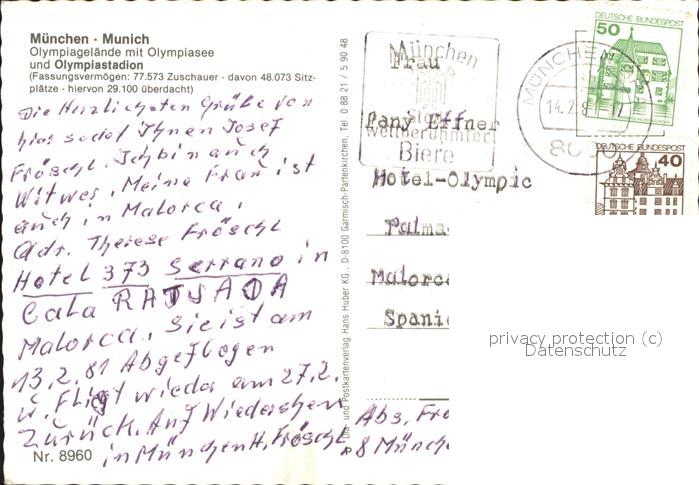 München - Munich
Olympiagelände mit Olympiasee
und Olympiastadion
(Fassungsvermögen: 77.573 Zuschauer - davon 48.073 Sitz-
plätze - hiervon 29.100 überdacht)
Die Herzlichsten Grüße von
hier Ihnen Josef
Fröschl. Ich bin auch
Witwer. Meine Frau ist
auch in Malorca.
Adr. Therese Fröschl
Hotel 373 Serrano in
Cala RATJADA
Malorca. Sie ist am
13.2.81 Abgeflogen
u. Fligt wieder am 27.2.
Zurück. Auf Wiedersehen
in München H. Fröschl
Nr. 8960
Dia- und Postkartenverlag Hans Huber KG., D-8100 Garmisch-Partenkirchen, Tel. 0 88 21 / 5 90 48
München
Stadt
weltberühmter
Biere
MÜNCHEN
14.2.8
80
DEUTSCHE BUNDESPOST
50
DEUTSCHE BUNDESPOST
40
Frau
Fany Effner
Hotel-Olympic
Palma
Malorc
Spani
Abs. Frö
8 Münch
privacy protection (c)
Datenschutz